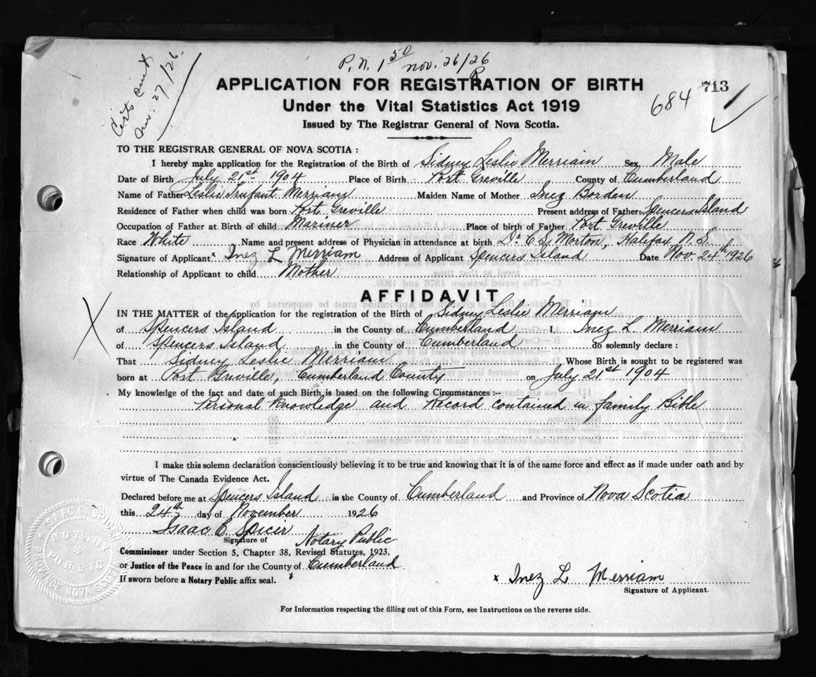 P.N. 1 50 Nov. 26/26
27/26
APPLICATION FOR REGISTRATION OF BIRTH
713
684
Under the Vital Statistics Act 1919
Issued by The Registrar General of Nova Scotia.
TO THE REGISTRAR GENERAL OF NOVA SCOTIA :
I hereby make application for the Registration of the Birth of Sidney Leslie Merriam Sex Male
Date of Birth July 21st 1904 Place of Birth Port Greville County of Cumberland
Name of Father Leslie Merriam Maiden Name of Mother Inez Borden
Residence of Father when child was born Port Greville Present address of Father Spencers Island
Occupation of Father at Birth of child Mariner Place of birth of Father Port Greville
Race White Name and present address of Physician in attendance at birth Dr. C. S. Morton, Halifax N.S.
Signature of Applicant x Inez L Merriam Address of Applicant Spencers Island Date Nov. 24th 1926
Relationship of Applicant to child Mother
AFFIDAVIT
IN THE MATTER of the application for the registration of the Birth of Sidney Leslie Merriam
of Spencers Island in the County of Cumberland I, Inez L. Merriam
of Spencers Island in the County of Cumberland do solemnly declare :
That Sidney Leslie Merriam Whose Birth is sought to be registered was
born at Port Greville, Cumberland County on July 21st 1904
My knowledge of the fact and date of such Birth, is based on the following Circumstances :-
Personal knowledge and Record contained in family Bible
I make this solemn declaration conscientiously believing it to be true and knowing that it is of the same force and effect as if made under oath and by
virtue of The Canada Evidence Act.
Declared before me at Spencers Island in the County of Cumberland and Province of Nova Scotia
this 24th day of November 1926
Isaac E Spicer
Signature of Notary Public
Commissioner under Section 5, Chapter 38, Revised Statutes, 1923.
or Justice of the Peace in and for the County of Cumberland
If sworn before a Notary Public affix seal.
x Inez L Merriam
Signature of Applicant.
For Information respecting the filling out of this Form, see Instructions on the reverse side.